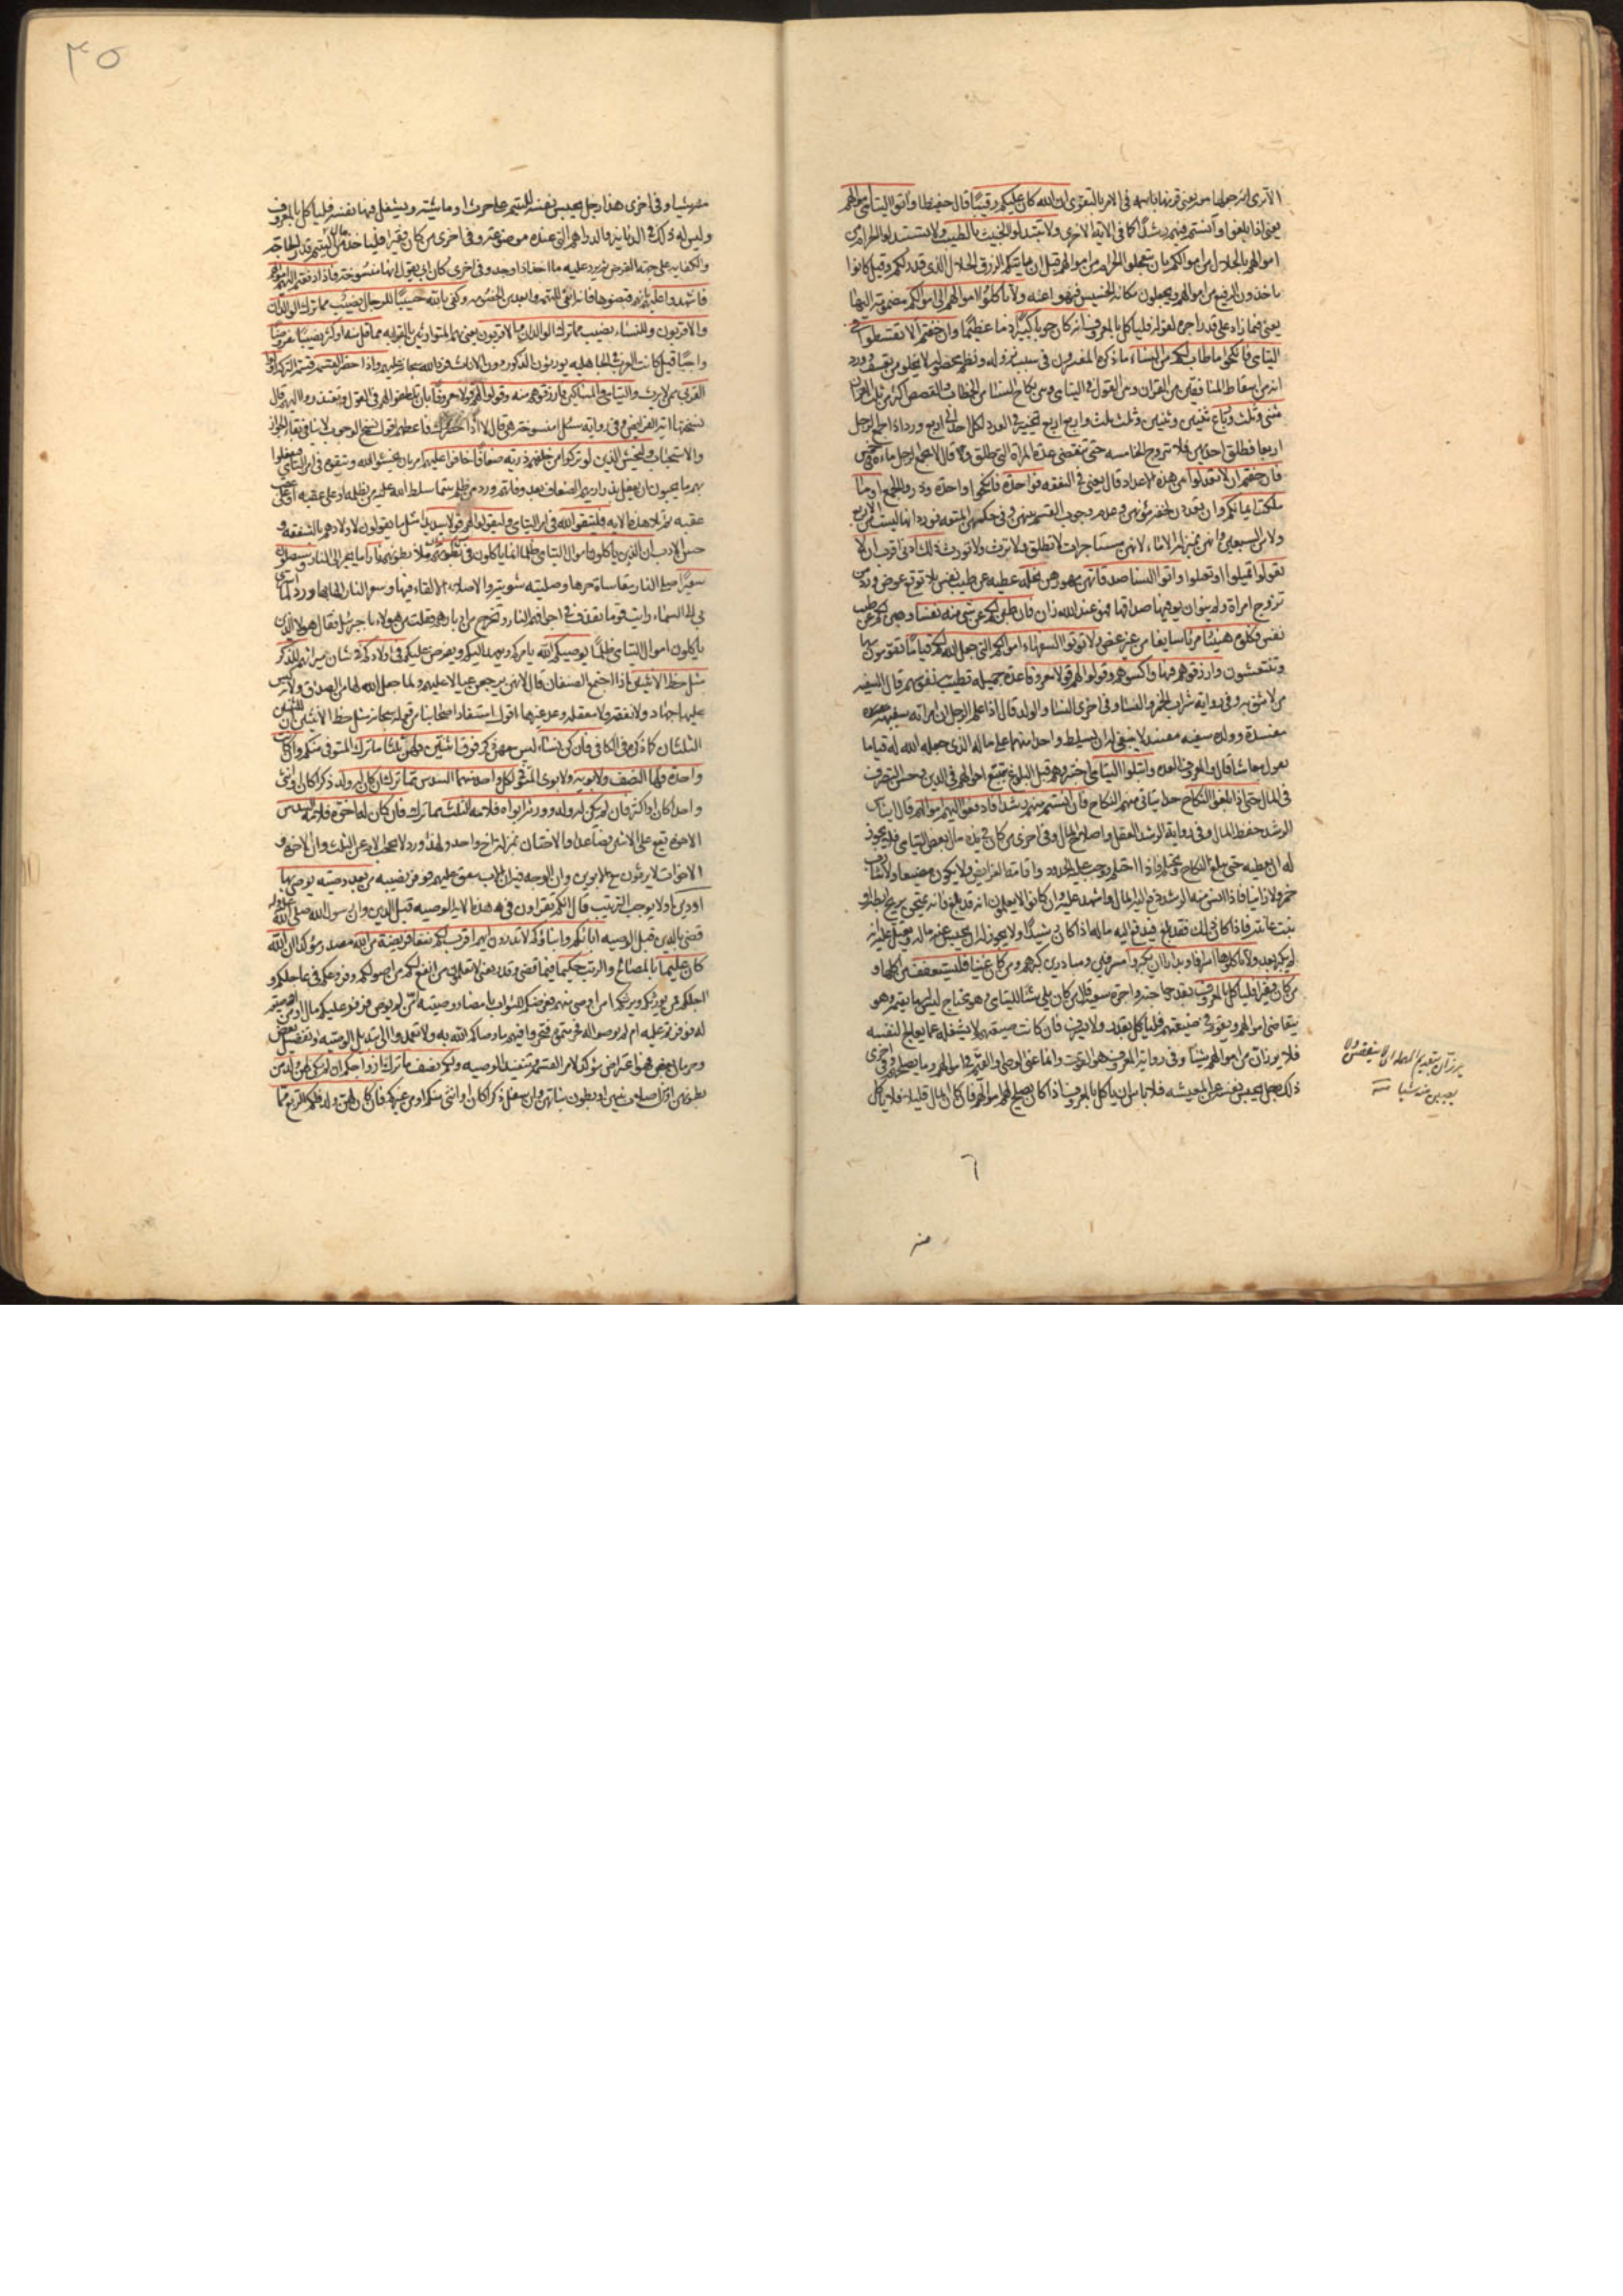 الا ترى انه جعلها من يعنى قرنها باسمه فى الامر بالتقوى ان الله كان عليكم رقيبا قال حفيظا واتوا اليتامى اموالهم
يعنى اذا بلغوا وآنستم منهم رشدا كما فى الاية الاخرى ولا تتبدلوا الخبيث بالطيب ولا تستبدلوا الحرام من
اموالهم بالحلال من اموالكم بان تتعجلوا الحرام من اموالهم قبل ان ياتيكم الرزق الحلال الذى قدر لكم وقيل كانوا
ياخذون الرفيع من اموالهم ويجعلون مكانه الخسيس فنهوا عنه ولا تاكلوا اموالهم الى اموالكم مضمومة اليها
يعنى فيما زاد على قدر اجره لقوله فلياكل بالمعروف انه كان حوبا كبيرا ذنبا عظيما وان خفتم الا تقسطوا فى
اليتامى فانكحوا ماطاب لكم من النساء ما ذكره المفسرون فى سبب نزوله ونظم محصله لا يخلو من تعسف وورد
انه من اسقاط المنافقين من القران وبين القول فى اليتامى وبين نكاح النساء من الخطاب والقصص اكثر من ثلث القران
مثنى وثلث ورباع ثنتين وثنتين وثلث ثلث واربع اربع تخيير فى العدد لكل احد الى اربع وورد اذا جمع الرجل
اربعا فطلق احديهن فلا يتزوج الخامسه حتى تنقضى عدة المراة التى طلق وقال لا يجمع الرجل ماءه فى خمس
فان خفتم ان لا تعدلوا بين هذه الاعداد قال يعنى فى النفقه فواحدة فانكحوا واحدة وذروا الجمع او ما
ملكت ايمانكم وان تعددن لخفة مؤنهن وعدم وجوب القسم بينهن وفى حكمهن المتعه فورد انها ليست من الاربع
ولا من السبعين وانهن بمنزلة الاماء لانهن مستاجرات لا تطلق ولا ترث ولا تورث ذلك ادنى اقرب ان لا
تعولوا تميلوا او تعولوا واتوا النسا صدقاتهن مهورهن نحله عطيه عن طيب نفس بلا توقع عوض وورد من
تزوج امراة ولم ينو ان يوفيها صداقها فهو عند الله زان فان طبن لكم عن شى منه نفسا وهبن لكم عن طيب
نفس فكلوه هنيئا مريئا سايغا من غير غصص ولا توتوا السفهاء اموالكم التى جعل الله لكم قياما تقومون بها
وتنتعشون وارزقوهم فيها واكسوهم وقولوا لهم قولا معروفا عدة جميله تطيب نفوسهم قال السفيه
من لا تثق به وفى رواية شراب الخمر والنساء وفى اخرى النسا والولد قال اذا علم الرجل ان امراته سفيهه
مفسدة وولده سفيه مفسد لا ينبغى له ان يسلط واحدا منهما على ماله الذى جعله الله له قياما
يقول معاشا قال والمعروف العدة وابتلوا اليتامى اختبروهم قبل البلوغ بتتبع احوالهم فى الدين وحسن التصرف
فى المال حتى اذا بلغوا النكاح حدا يتاتى منهم النكاح فان انستم منهم رشدا فادفعوا اليهم اموالهم قال ايناس
الرشد حفظ المال وفى رواية الرشد العقل واصلاح المال وفى اخرى من كان فى يده مال بعض اليتامى فلا يجوز
له ان يعطيه حتى يبلغ النكاح ويحتلم فاذا احتلم وجب عليه الحدود واقامة الفرايض ولا يكون مضيعا ولا شارب
خمر ولا زانيا فاذا انس منه الرشد دفع اليه المال واشهد عليه وان كانوا لا يعلمون انه قد بلغ فانه يمتحن بريح ابطه او
نبت عانته فاذا كان ذلك فقد بلغ فيدفع اليه ماله اذا كان رشيدا ولا يجوز له ان يحبس عنه ماله ويعتل عليه انه
لم يكبر بعد ولا تاكلوها اسرافا وبدارا ان يكبروا مسرفين ومبادرين كبرهم ومن كان غنيا فليستعفف من اكلها و
من كان فقيرا فلياكل بالمعروف بقدر حاجته واجرة سعيه قال من كان يلى شئا لليتامى وهو محتاج ليس له ما يقيمه وهو
يتقاضى اموالهم ويقوم فى ضيعتهم فلياكل بقدر ولا يسرف فان كانت ضيعتهم لا يشغله عما يعالج لنفسه
فلا يرزان من اموالهم شيئا وفى رواية المعروف هو القوت وانما عنى الوصى او القيم فى اموالهم وما يصلحهم وفى اخرى
ذلك رجل يحبس نفسه عن المعيشه فلا باس ان ياكل بالمعروف اذا كان يصلح لهم اموالهم فان كان المال قليلا فلا ياكل
منه
٣٥
منه شيا وفى اخرى هذا رجل يحبس نفسه لليتيم على حرث او ماشية ويشغل فيها نفسه فلياكل بالمعروف
وليس له ذلك فى الدنانير والدراهم التى عنده موضوعة وفى اخرى من كان فقيرا فلياخذ من مال اليتيم قدر الحاجة
والكفايه على جهة القرض ثم يرد عليه ما اخذ اذا وجد وفى اخرى كان ابى يقول انها منسوخة فاذا دفعتم اليهم اموالهم
فاشهدوا عليهم بانهم قبضوها فانه انفى للتهمه وابعد من الخصومه وكفى بالله حسيبا للرجال نصيب مما ترك الوالدان
والاقربون وللنساء نصيب مما ترك الوالدان والاقربون يعنى بهم المتوارثين بالقرابه مما قل منه او كثر نصيبا مفروضا
واجبا قيل كانت العرب فى الجاهليه يورثون الذكور دون الاناث فرد الله سبحانه عليهم واذا حضر القسمة قسمة التركة اولوا
القربى ممن لا يرث واليتامى والمساكين فارزقوهم منه وقولوا لهم قولا معروفا بان تلطفوا لهم فى القول
نسختها اية الفرايض وفى رواية سئل امنسوخة هى قال لا اذا حضرك فاعطهم اقول نسخ الوجوب لا ينافى بقاء الجواز
والاستحباب وليخش الذين لو تركوا من خلفهم ذرية ضعافا خافوا عليهم امر بان يخشوا الله ويتقوه فى امر اليتامى فيفعلوا
بهم ما يحبون ان يفعل بذراريهم الضعاف بعد وفاتهم وورد من ظلم يتيما سلط الله عليه من يظلمه او على عقبه او على عقب
عقبه ثم تلا هذه الايه فليتقوا الله فى امر اليتامى وليقولوا لهم قولا سديدا مثل ما يقولون لاولادهم بالشفقه و
حسن الادب ان الذين ياكلون اموال اليتامى ظلما انما ياكلون فى بطونهم ملأ بطونهم نارا ما يجر الى النار وسيصلون
سعيرا صلى النار مقاساة حرها وصليته شويته والاصلاء الالقاء فيها وسعر النار الهابها وورد لما اسرى
بى الى السماء رايت قوما تقذف فى اجوافهم النار وتخرج من ادبارهم فقلت من هولاء يا جبرئيل فقال هولاء الذين
ياكلون اموال اليتامى ظلما يوصيكم الله يامركم ويعهد اليكم ويفرض عليكم فى اولادكم فى شان ميراثهم للذكر
مثل حظ الانثيين اذا اجتمع الصنفان قال لانهن يرجعن عيالا عليهم ولما جعل الله لها من الصداق ولانه ليس
عليها جهاد ولا نفقة ولا معقله وعد غيرها اقول استفاد اصحابنا من قوله سبحانه مثل حظ الانثيين ان للبنتين
الثلثان كما ذكره فى الكافى فان كن نساء ليس معهن ذكر فوق اثنتين فلهن ثلثا ما ترك المتوفى منكم وان كانت
واحدة فلها النصف ولابويه ولابوى المتوفى لكل واحد منهما السدس مما ترك ان كان له ولد ذكرا كان او انثى
واحدا كان او اكثر فان لم يكن له ولد وورثه ابواه فلامه الثلث مما ترك فان كان له اخوة فلامه السدس
الاخوة تقع على الاثنين فصاعدا والاختان بمنزلة اخ واحد ولهذا ورد لا يحجب الام عن الثلث وان الاخوة و
الاخوات لا يرثون مع الابوين وان الوجه فيه ان الاب ينفق عليهم فوفر نصيبه من بعد وصية يوصى بها
او دين او لا يوجب الترتيب قال انكم تقراون فى هذه الاية الوصيه قبل الدين وان رسول الله صلى الله عليه واله
قضى بالدين قبل الوصيه اباؤكم وابناؤكم لا تدرون ايهم اقرب لكم نفعا فريضة من الله مصدر مؤكد ان الله
كان عليما بالمصالح والرتب حكيما فيما قضى وقدر يعنى لا تعلمون من انفع لكم من اصولكم وفروعكم فى عاجلكم و
اجلكم ممن يورثكم ويرثكم امن اوصى منهم فعرضكم للثواب بامضاء وصيته ام من لم يوص فوفر عليكم ماله او من اوصيتم
له فوفرتم عليه ام لم توصوا له فحرمتموه فتحروا فيهم ما وصاكم الله به ولا تعمدوا الى تبديل الوصيه او تفضيل بعض
وحرمان بعض فهو اعتراض مؤكد لامر القسمة وتنفيذ الوصيه ولكم نصف ما ترك ازواجكم ان لم يكن لهن ولد من
بطونهن او من اصلاب بنيهن او بطون بناتهن وان سفل ذكرا كان او انثى منكم او من غيركم فان كان لهن ولد فلكم الربع مما